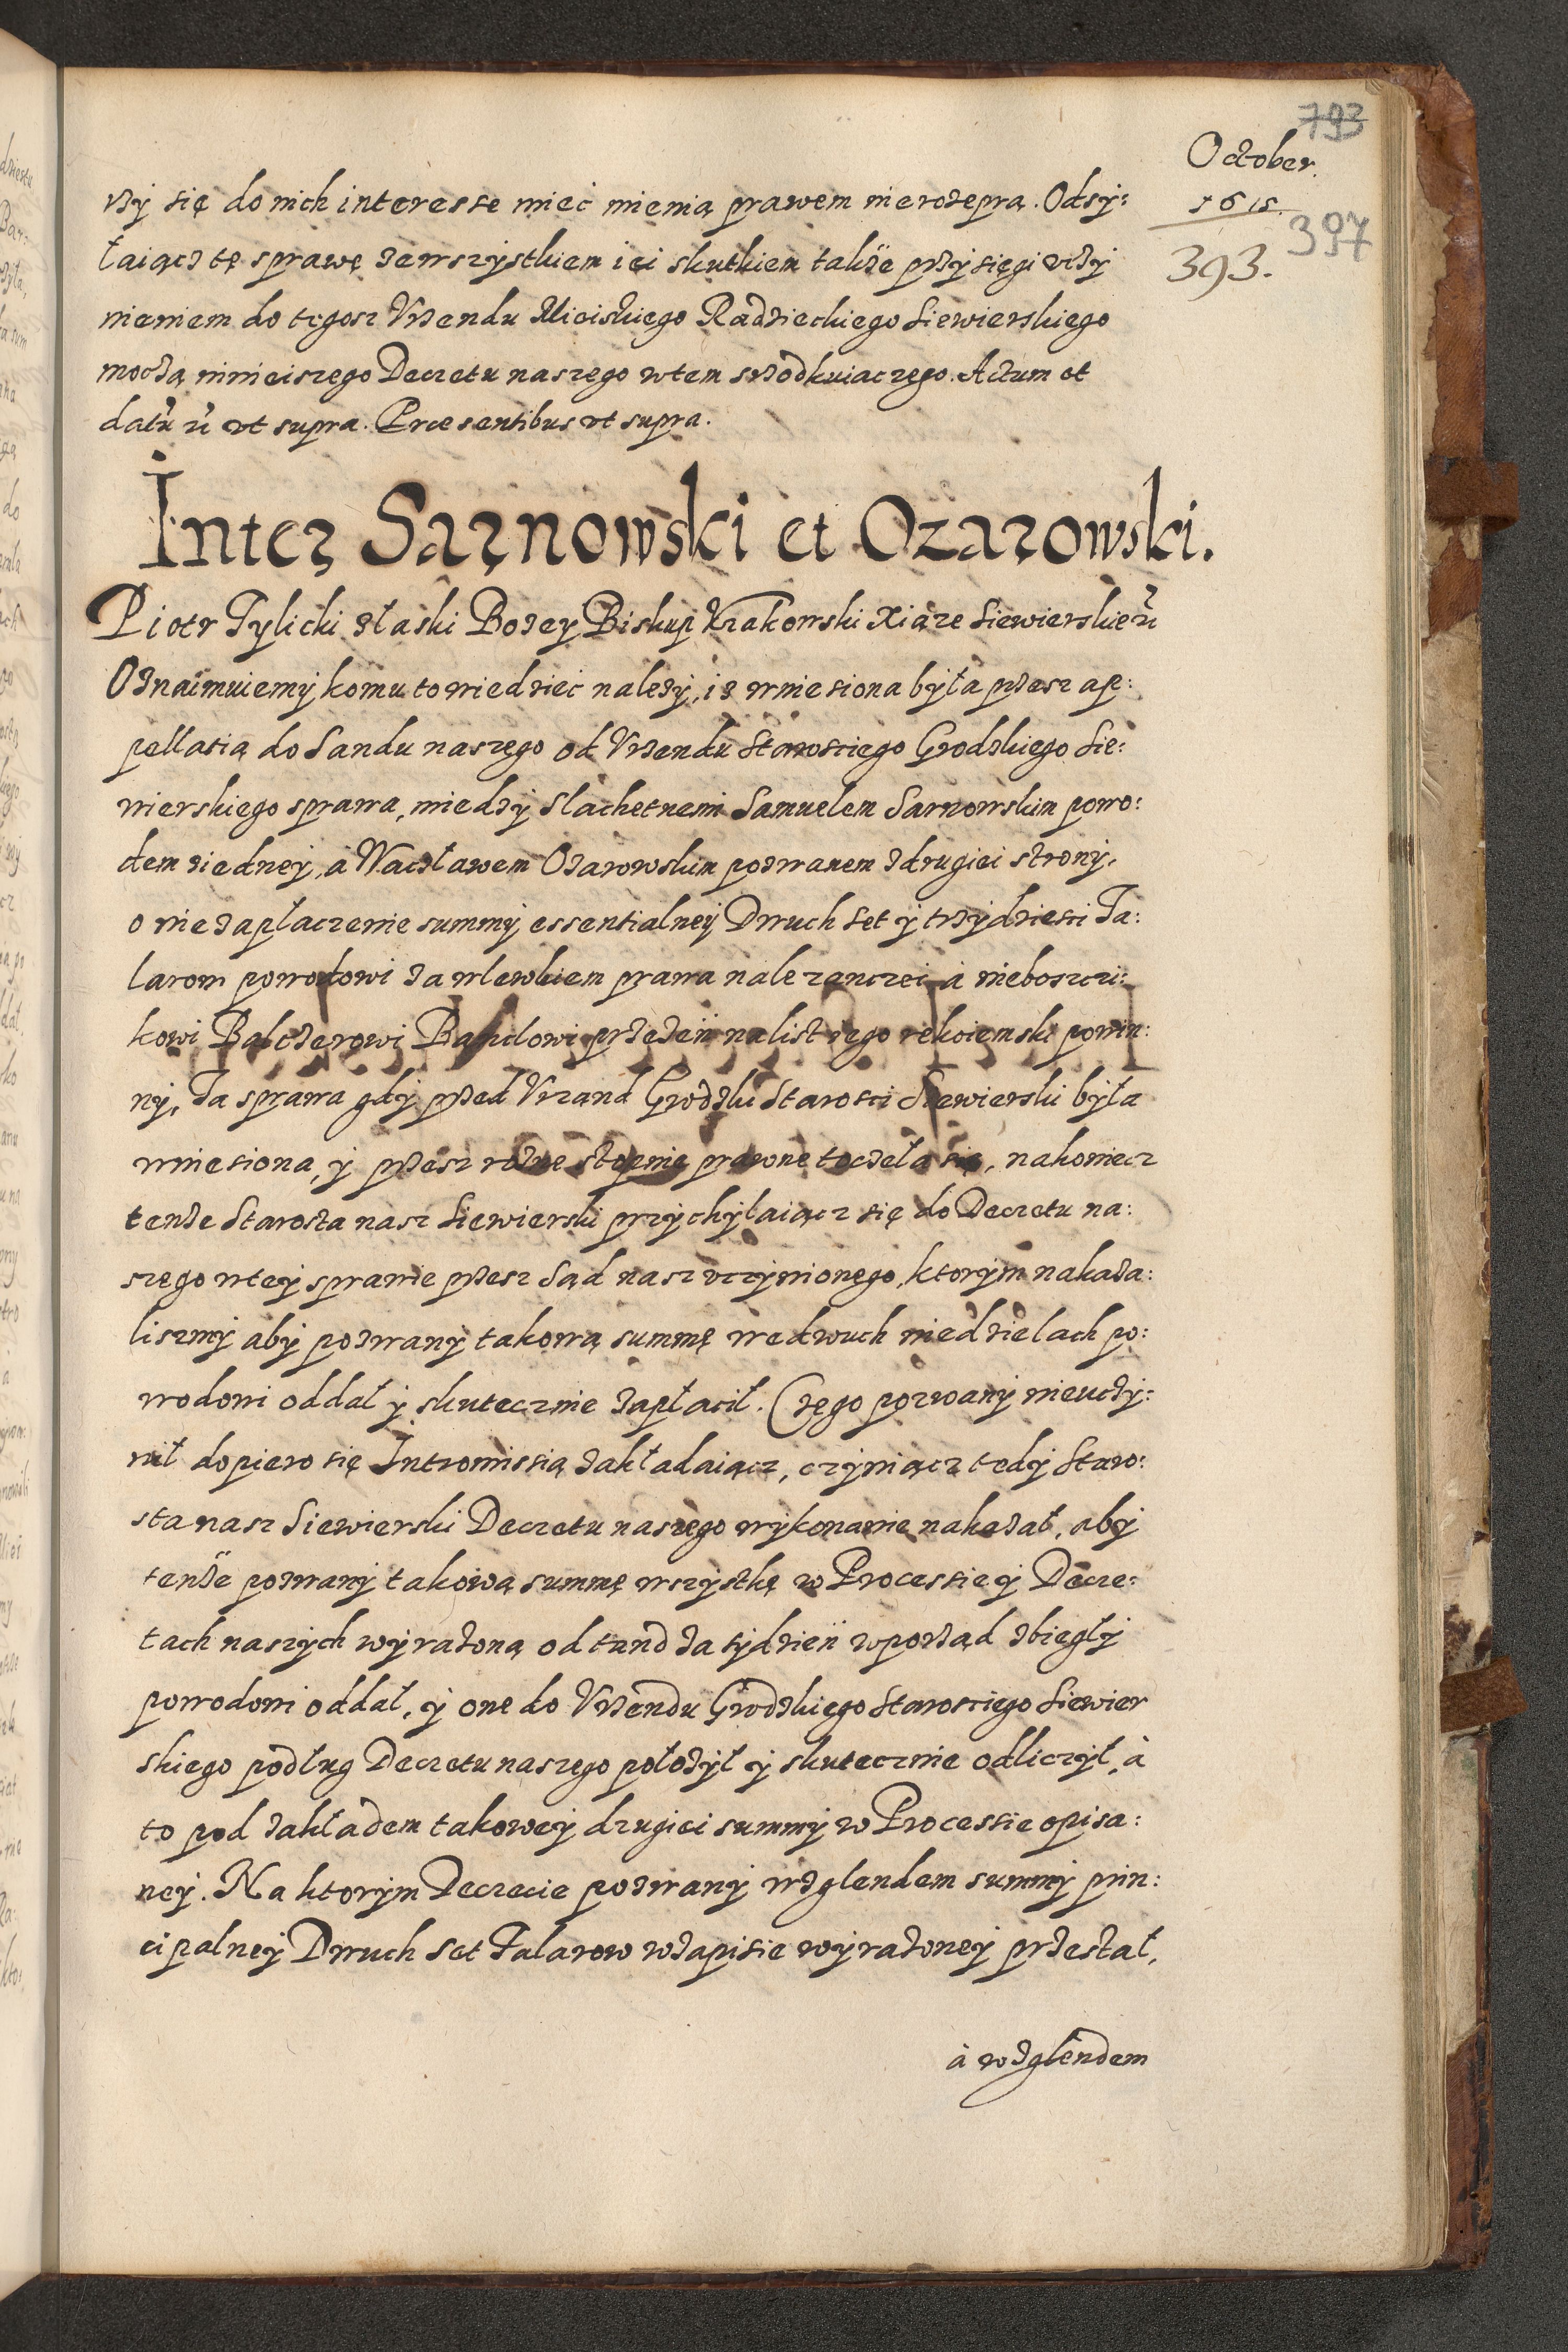 793
October.
1615.
397
393.
rzy się do nich interesse mieć mienią prawem nierozeprą. Odsy:
łaiącz tę sprawę zewszystkiem iei skutkiem także przysięgi vczy
nieniem do tegosz Vrzendu Mieiskiego Radzieckiego Siewierskiego
moczą ninieiszego Decretu naszego wtem srzodkuiaczego. Actum et
datū ū vt supra. Præsentibus vt supra.
Inter Sarnowski et Ozarowski.
Piotr Tylicki złaski Bozey Biskup Krakowski Xiąze Siewierskie
Oznaimuiemy komu to wiedzieć należy, iz wniesiona była przesz ap:
pellatią do Sandu naszego od Vrzendu Starosciego Grodzkiego Sie:
wierskiego sprawa, miedzy slachetnemi Samuelem Sarnowskim powo:
dem ziedney, à Waczławem Ozarowskim pozwanem zdrugiei strony,
o niezapłaczenie summy essentialney Dwuch set y trzydziesci Ta:
larow powodowi za wlewkiem prawa nalezanczei à nieboszczi:
kowi Balczerowi Banclowi przedeń nalist iego rekoiemski powin:
ny, Ta sprawa gdy przed Vrzand Grodzki Starosci Siewierski była
wniesiona, y przesz rozne stopnie prawne toczeła się, nakoniecz
tenze Starosta nasz Siewierski przychylaiącz się do Decretu na:
szego wtey sprawie przesz Sąd nasz vczynionego, ktorym nakaza:
liszmy aby pozwany takową summę wedwuch niedzielach po:
wodowi oddał y skutecznie zapłacił. Czego pozwany nieuczy:
nił dopiero się Intromissią zakładaiącz, czyniącz tedy Staro:
sta nasz Siewierski Decretu naszego wykonanie nakazał, aby
tenże pozwany takową summę wszystkę w Processie y Decre:
tach naszych wyrazoną od tand za tydzień wporząd zbiegły
powodowi oddał, y one do Vrzendu Grodzkiego Starosciego Siewier
skiego podług Decretu naszego położył y skutecznie odliczył, à
to pod zakładem takowey drugiei summy w Processie opisa:
ney. Na ktorym Decrecie pozwany wzglendem summy prin:
cipalney Dwuch set Talarow wzapisie wyrazoney przestał,
à wzglendem